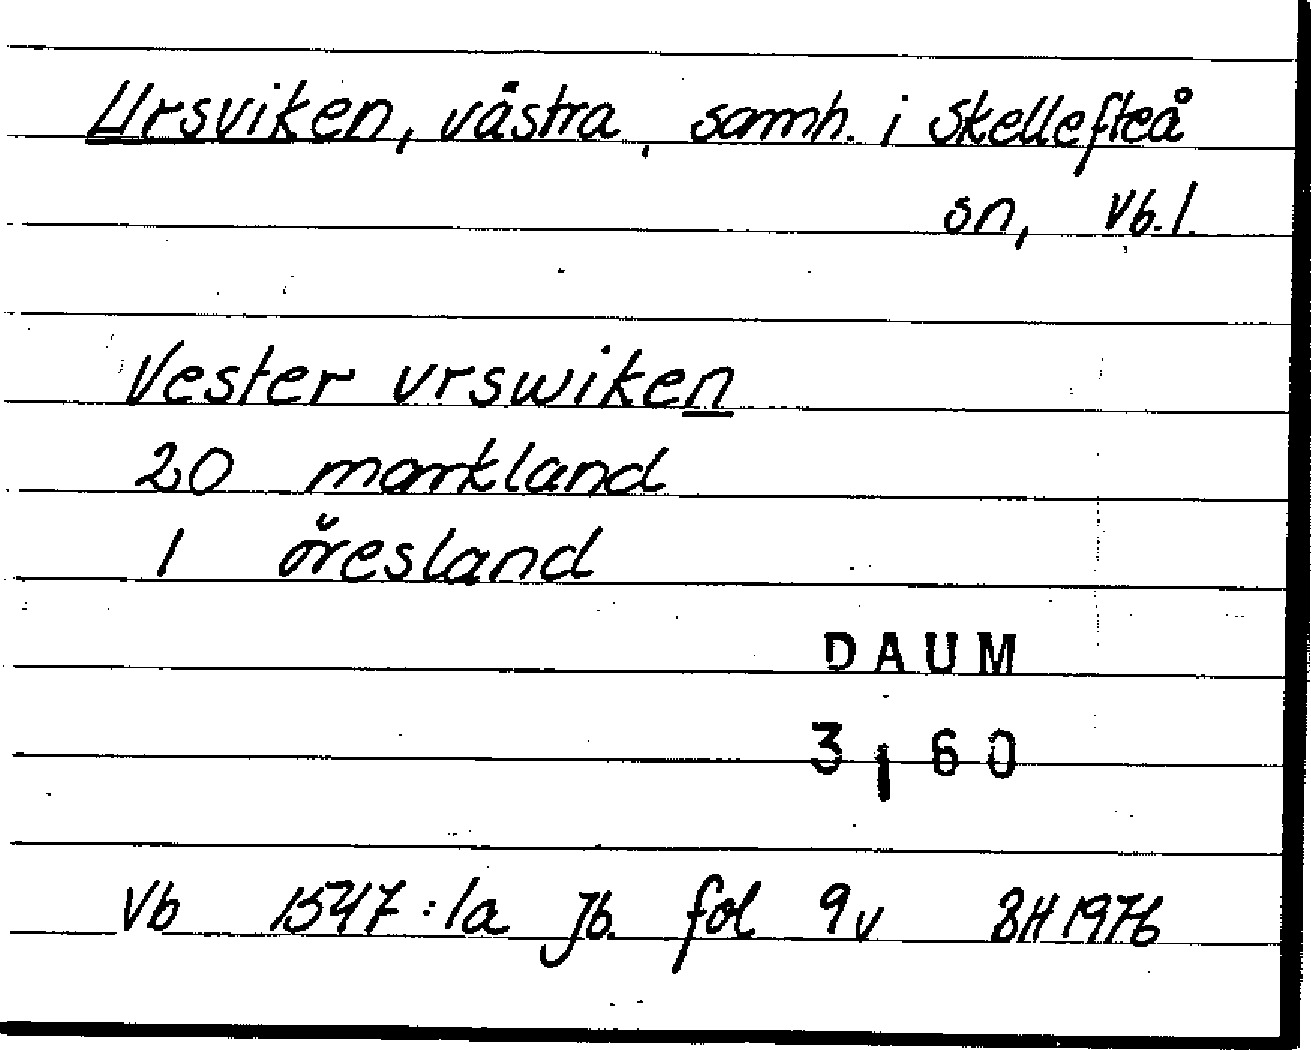 Ursviken, västra, samh. i Skellefteå
sn, Vb.l.
Vester vrswiken
20 markland
1 öresland
DAUM
3160
Vb 1547:1a Jb. fol 9v BH 1976